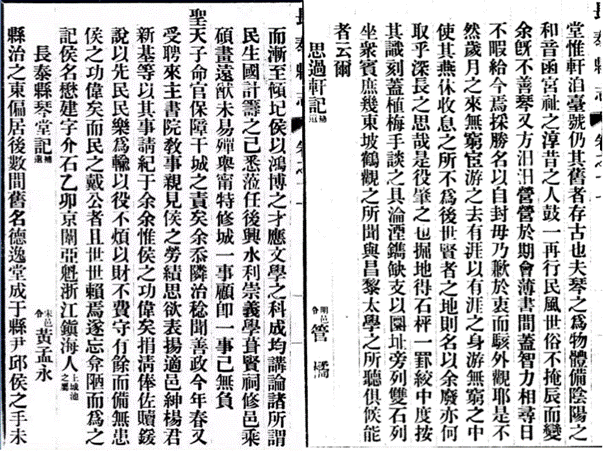 長泰縣志 卷之十
堂惟軒泊臺號仍其舊者存古也夫琴之爲物體備陰陽之
和音函宮祉之淳昔之人鼓一再行民風世俗不掩辰而變
余旣不善琴又方汨汨營營於期會薄書間蓋智力相尋日
不暇給今焉採勝名以自封毋乃歉於衷而駭外觀耶是不
然歲月之來無窮宦游之去有涯以有涯之身游無窮之中
使其燕休收息之所不爲後世賢者之地則名以余廢亦何
取乎深長之思哉是役筆之也掘地得石枰一罫絞中度按
其識刻蓋植梅手談之具淪湮鐫缺支以園址旁列雙石列
坐衆賓庶幾東坡鶴觀之所聞與昌黎太學之所聽俱候能
者云爾
思過軒記補遺 明邑令 管橘
長泰縣志 卷之十
而漸至傾圮侯以鴻博之才應文學之科成均講論諸所謂
民生國計籌之已悉涖任後興水利崇義學葺賢祠修邑乘
碩畫遠猷未易殫舉甯特修城一事顧卽一事已無負
聖天子命官保障干城之責矣余忝隣治稔聞善政今年春又
受聘來主書院教事親見侯之勞績思欲表揚適邑紳楊君
新基等以其事請紀于余余惟侯之功偉矣捐淸俸佐贖鍰
說以先民民樂爲輸以役不煩以財不費守有餘而備無患
侯之功偉矣而民之戴公者且世世賴焉遂忘弇陋而爲之
記侯名懋建字介石乙卯京闈亞魁浙江鎭海人主城池之屬
長泰縣琴堂記補遺 宋邑令 黃孟永
縣治之東偏居後數間舊名德逸堂成于縣尹邱侯之手未